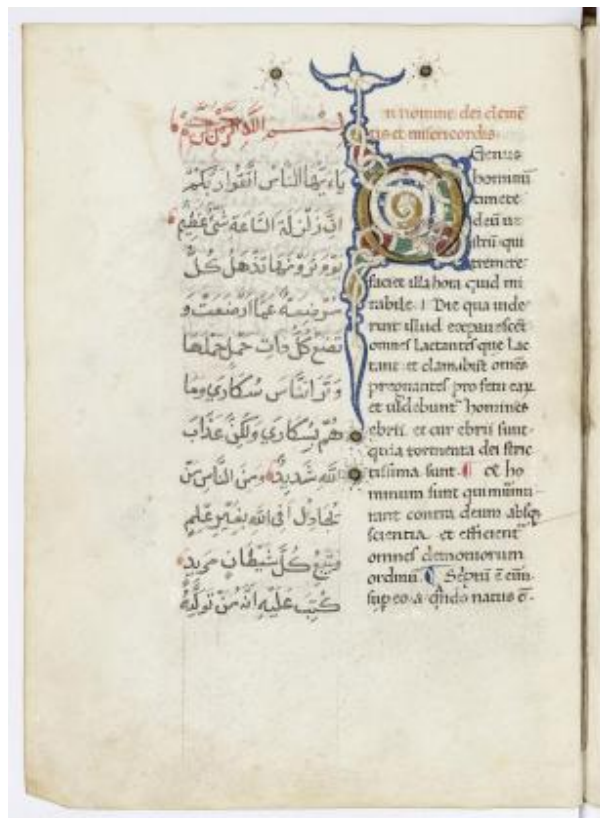 بسم الله الرحمن الرحيم
ياءيها الناس اتقوا ربكم
ان زلزلة الساعة شئ عظيم
يوم ترونها تذهل كل
مرضعة عما ارضعت و
تضع كل ذات حمل حملها
وترا الناس سكارى وما
هم بسكارى ولكن عذاب
الله شديد ومن الناس من
يجادل في الله بغير علم
ويتبع كل شيطان مريد
كتب عليه انه من تولاه
n nomine dei clemē
tis et misericordis
Genus
hominū
timete
deū ue
strū qui
tremere
faciet illa hora quid mi
rabile. Die qua uide
runt illud expauescēt
omnes lactantes que lac
tant et clamabūt omēs
pregnantes pro fetu
et uidebunt homines
ebrii et cur ebrii sunt
quia tormenta dei stric
tissima sunt. ¶ et ho
minum sunt qui
rant contra deum absq
scientia et efficient
omnes demoniorum
ordinū. ¶ Scriptū ē enī
sup eo a quādo natus ē.